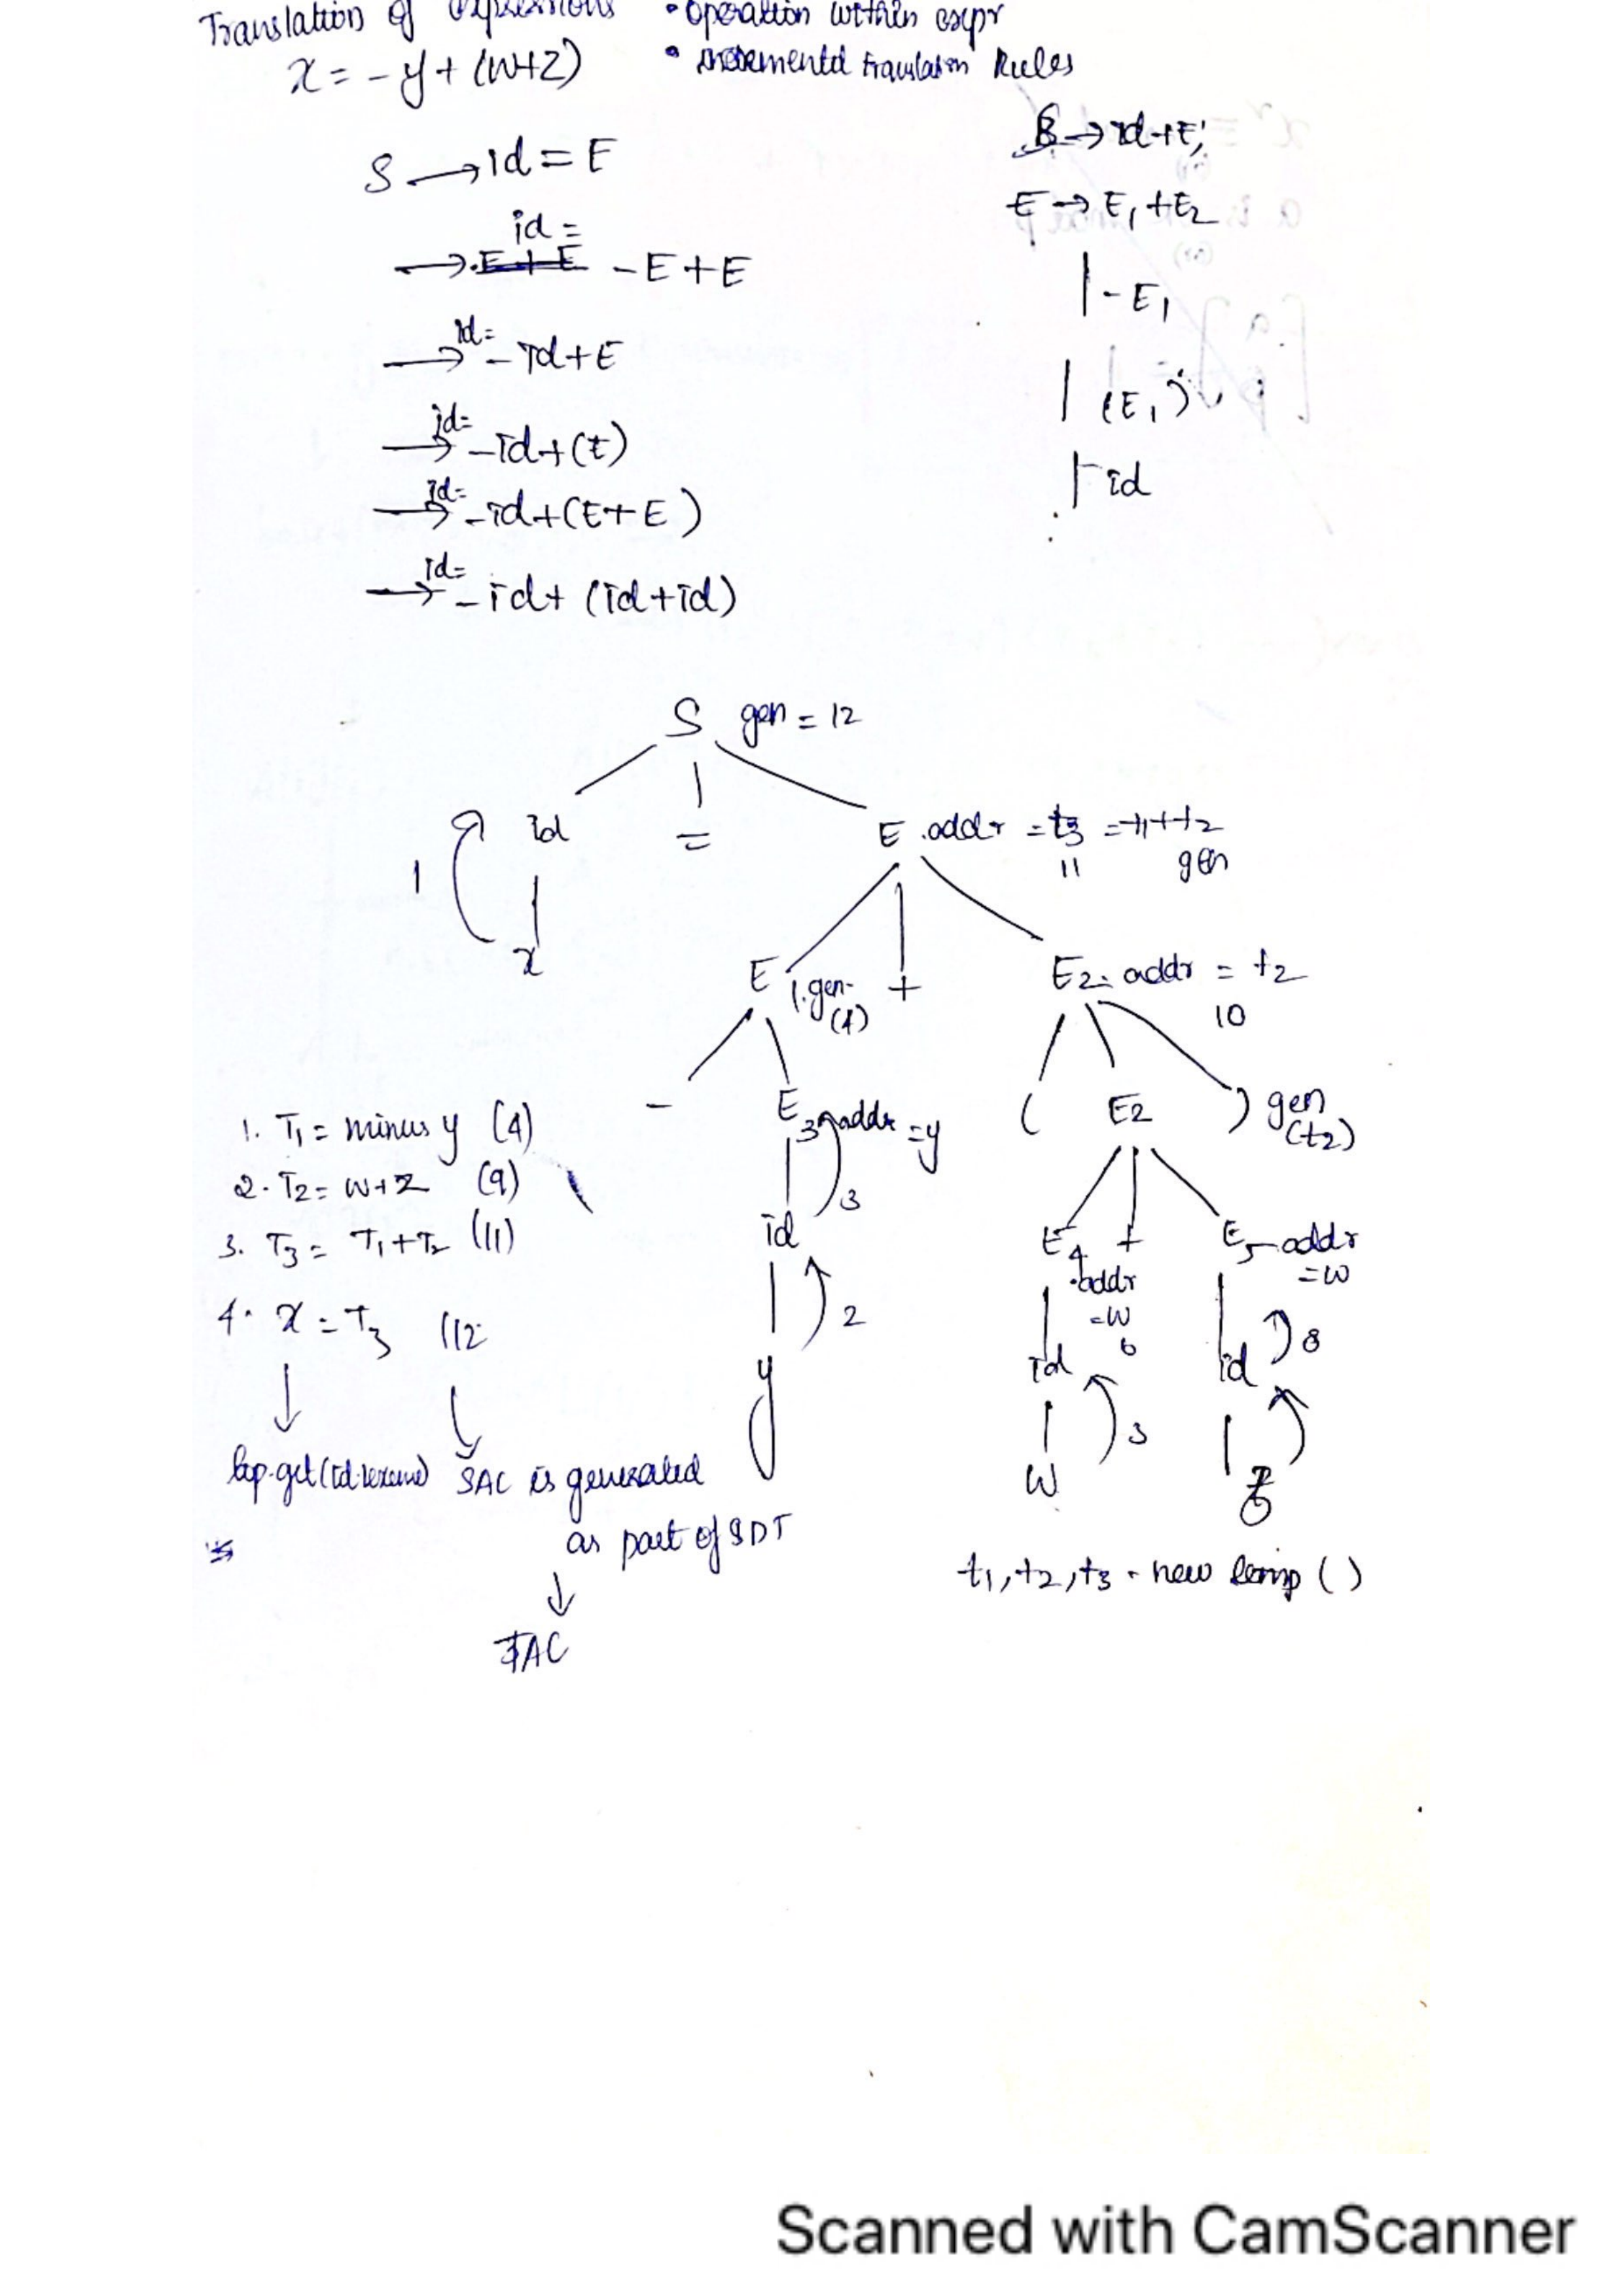 Translation of expressions
• operation within expr
• incremental translation Rules
x = - y + (w+z)
S → id = E
id =
→ E + E - E + E
id=
→ - id + E
id=
→ - id + (E)
id=
→ - id + (E + E)
id=
→ - id + (id + id)
S → id + E;
E → E1 + E2
| - E1
| (E1)
| id
S gen = 12
id = E .addr = t3 = t1 + t2
11 gen
1
x
E1.gen (4) + E2. addr = t2
10
- E3 addr = y ( E2 ) gen (t2)
3
id E4 + E5 addr
.addr = w
= w
6
2 id id 8
y 3
w z
1. T1 = minus y (4)
2. T2 = w+z (9)
3. T3 = T1 + T2 (11)
4. x = T3 (12
↓ ↓
top.get(id.lexeme) 3AC is generated
as part of SDT
↓
3AC
t1, t2, t3 - new temp ( )
Scanned with CamScanner